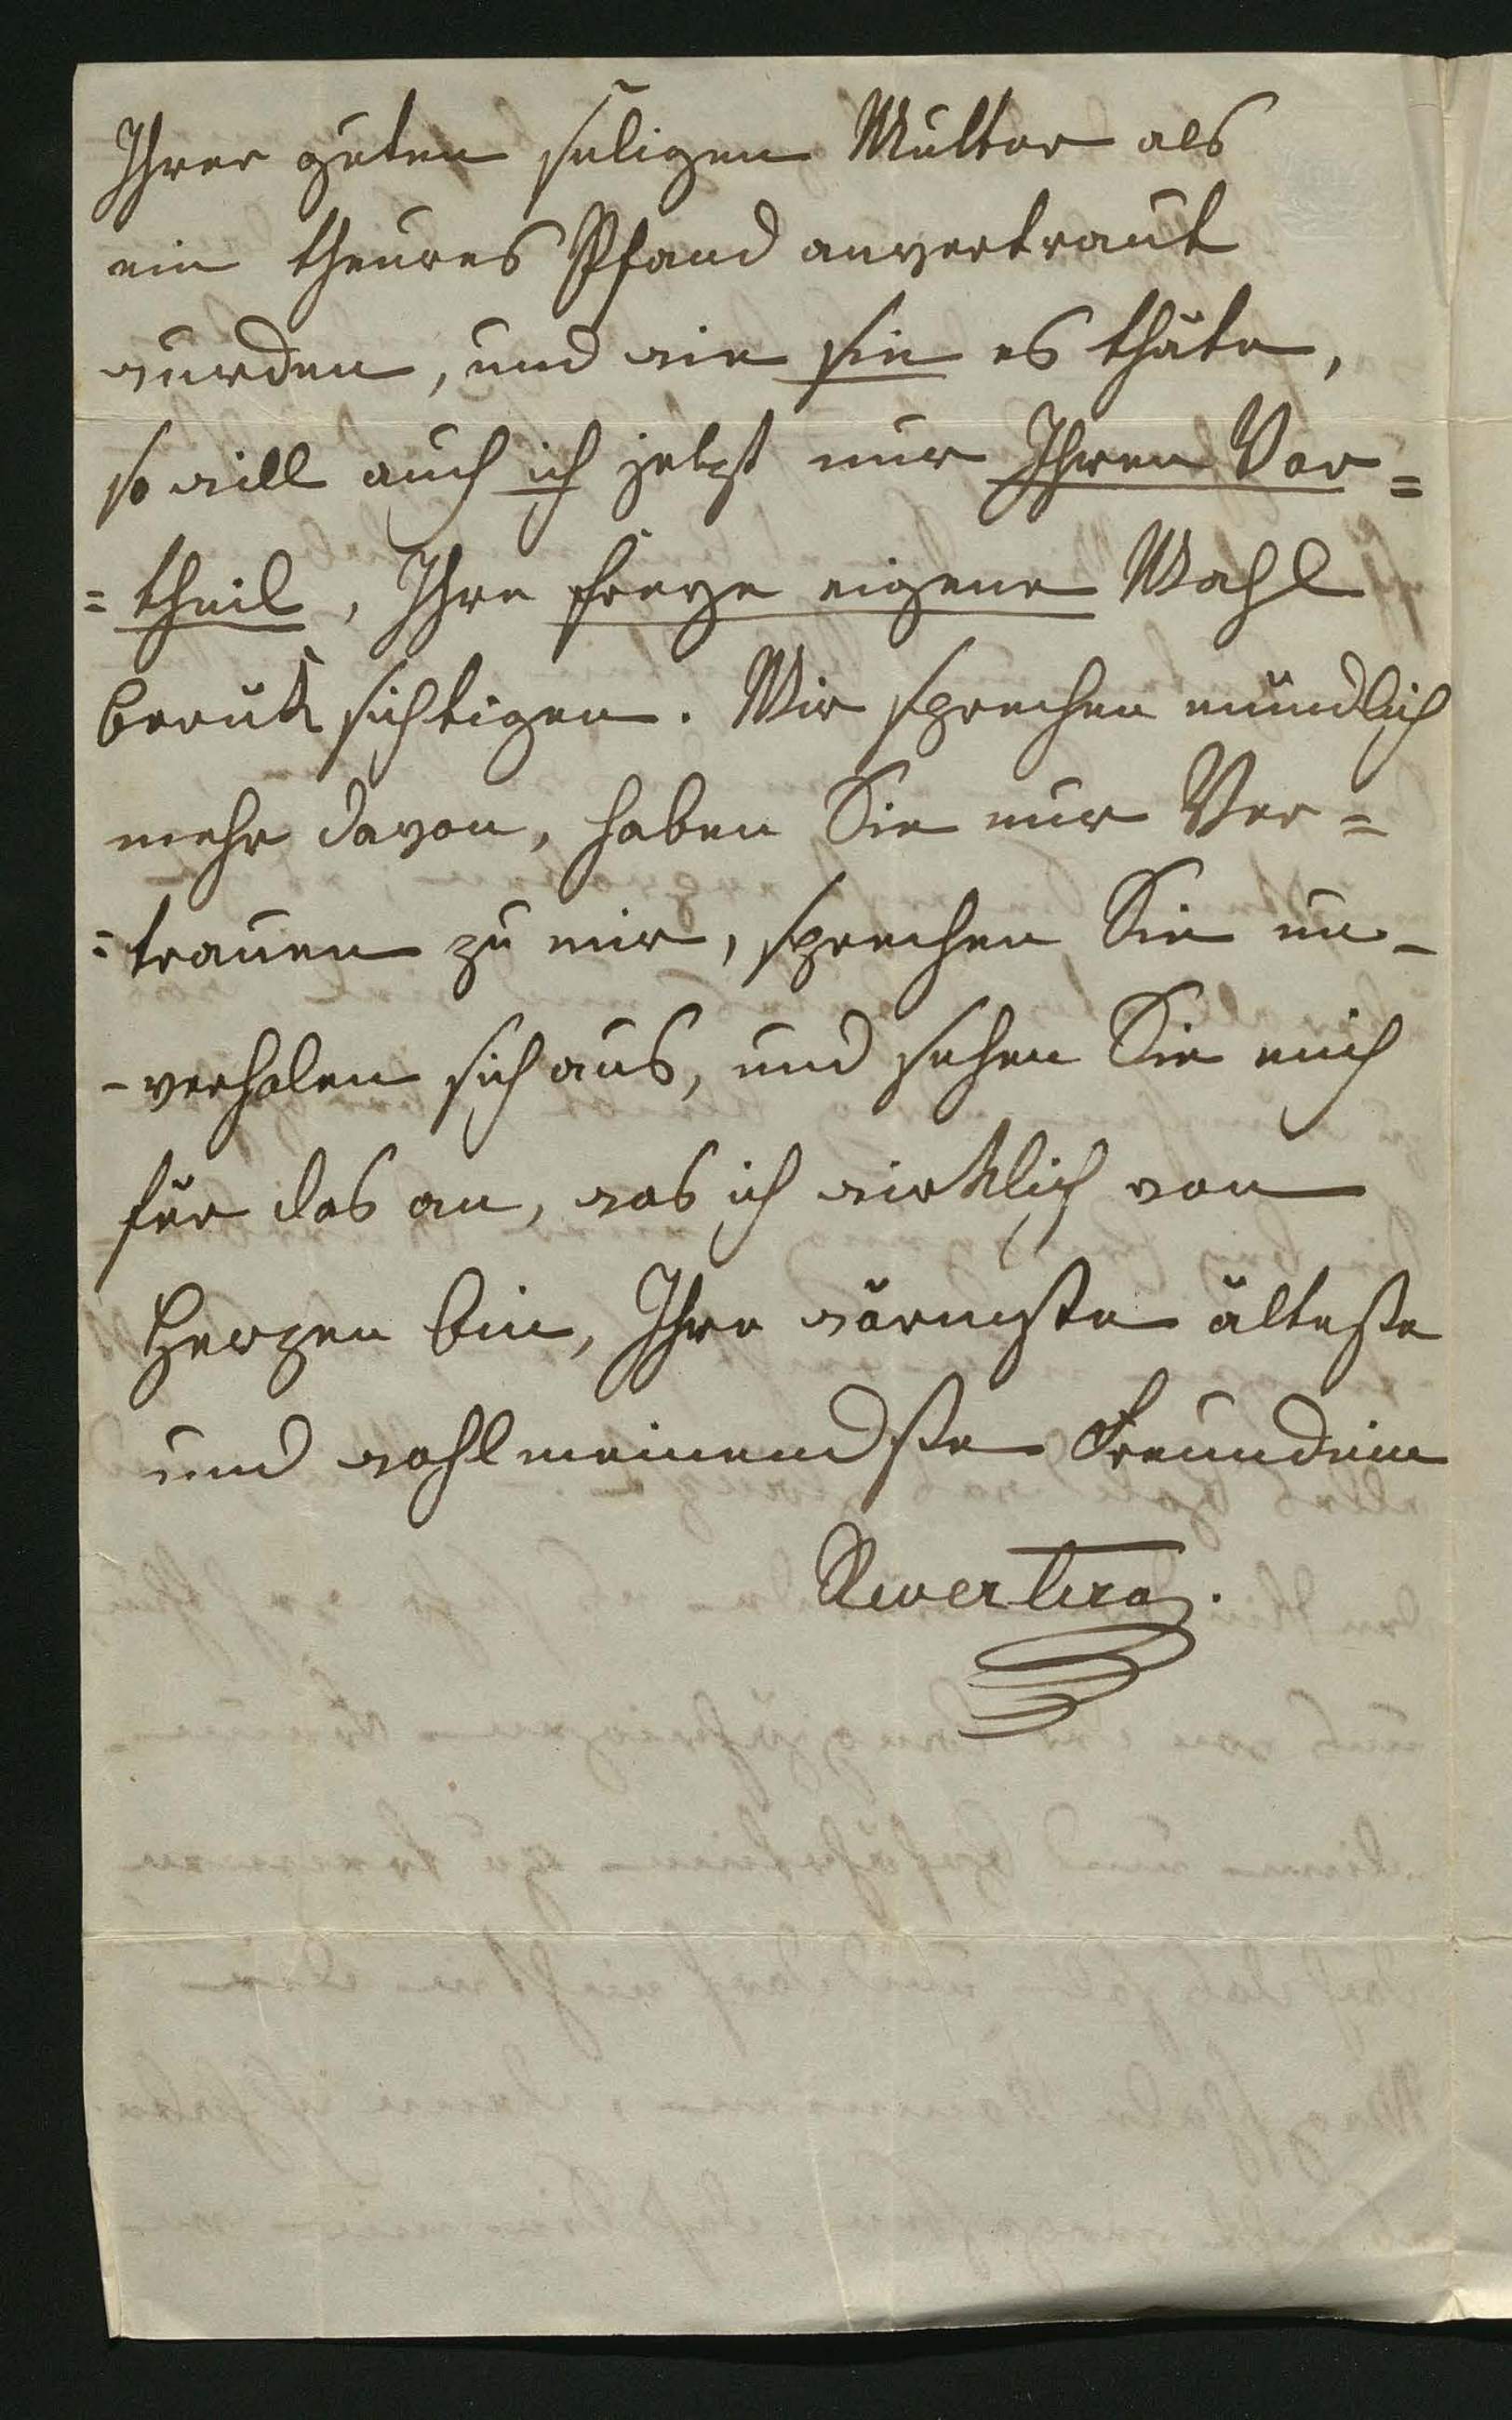 Ihrer guten seligen Mutter als
ein theures Pfand anvertraut
wurden, und wie sie es thäte,
so will auch ich jetzt nur Ihren Vor=
=theil, Ihre freye eigene Wahl
berüksichtigen. Wir sprechen mündlich
mehr davon, haben Sie nur Ver=
=trauen zu mir, sprechen Sie un-
-verholen sich aus, und sehen Sie mich
für das an, was ich wirklich von
Herzen bin, Ihre wärmste älteste
und wohlmeinendste Freundinn
Revertera.